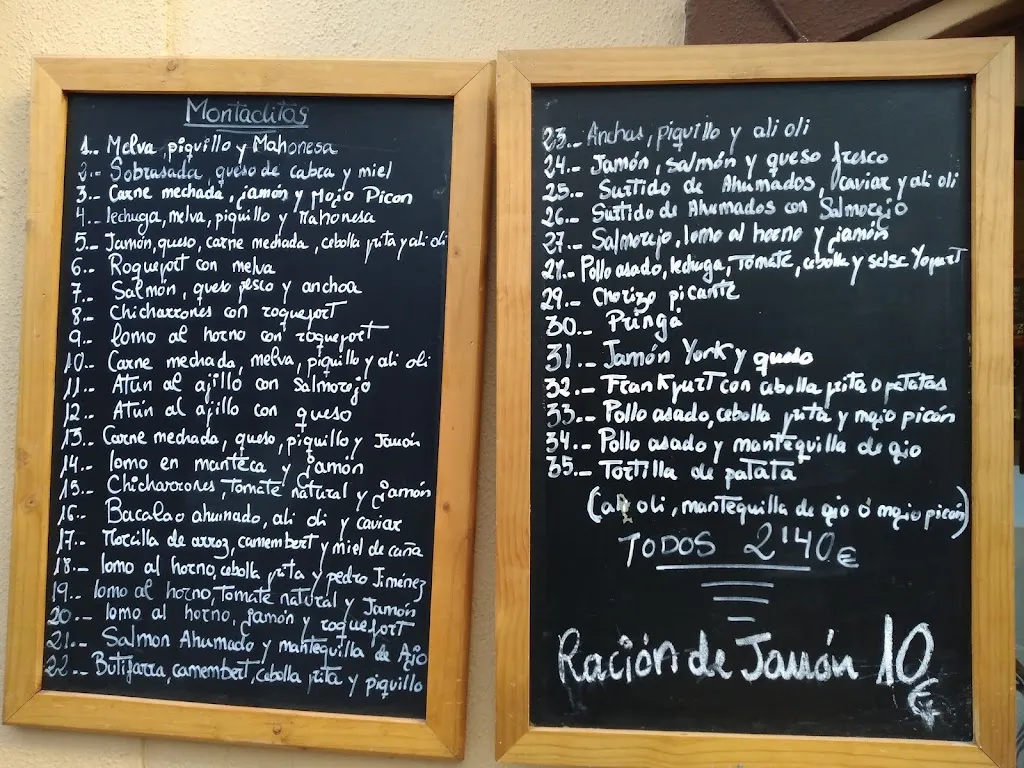 Montaditos
1.- Melva, piquillo y Mahonesa
2.- Sobrasada, queso de cabra y miel
3.- Carne mechada, jamón y Mojo Picon
4.- lechuga, melva, piquillo y Mahonesa
5.- Jamón, queso, carne mechada, cebolla frita y ali oli
6.- Roquefort con melva
7.- Salmón, queso fesco y anchoa
8.- Chicharrones con roquefort
9.- lomo al horno con roquefort
10.- Carne mechada, melva, piquillo y ali oli
11.- Atún al ajillo con Salmorejo
12.- Atún al ajillo con queso
13.- Carne mechada, queso, piquillo y Jamón
14.- lomo en manteca y jamón
15.- Chicharrones, tomate natural y jamón
16.- Bacalao ahumado, ali oli y caviar
17.- Morcilla de arroz, camembert y miel de caña
18.- lomo al horno, cebolla frita y pedro Jiménez
19.- lomo al horno, Tomate natural y Jamón
20.- lomo al horno, jamón y roquefort
21.- Salmon Ahumado y mantequilla de Ajo
22.- Butifarra, camembert, cebolla frita y piquillo
23.- Anchas, piquillo y ali oli
24.- Jamón, salmón y queso fresco
25.- Surtido de Ahumados, caviar y ali oli
26.- Surtido de Ahumados con Salmorejo
27.- Salmorejo, lomo al horno y jamón
28.- Pollo asado, lechuga, Tomate, cebolla y salsa Yogurt
29.- Chorizo picante
30.- Pringá
31.- Jamón York y queso
32.- Frankfurt con cebolla frita o patatas
33.- Pollo asado, cebolla frita y mojo picón
34.- Pollo asado y mantequilla de ajo
35.- Tortilla de patata
(ali oli, mantequilla de ajo ó mojo picón)
TODOS 2'40€
Ración de Jamón 10€